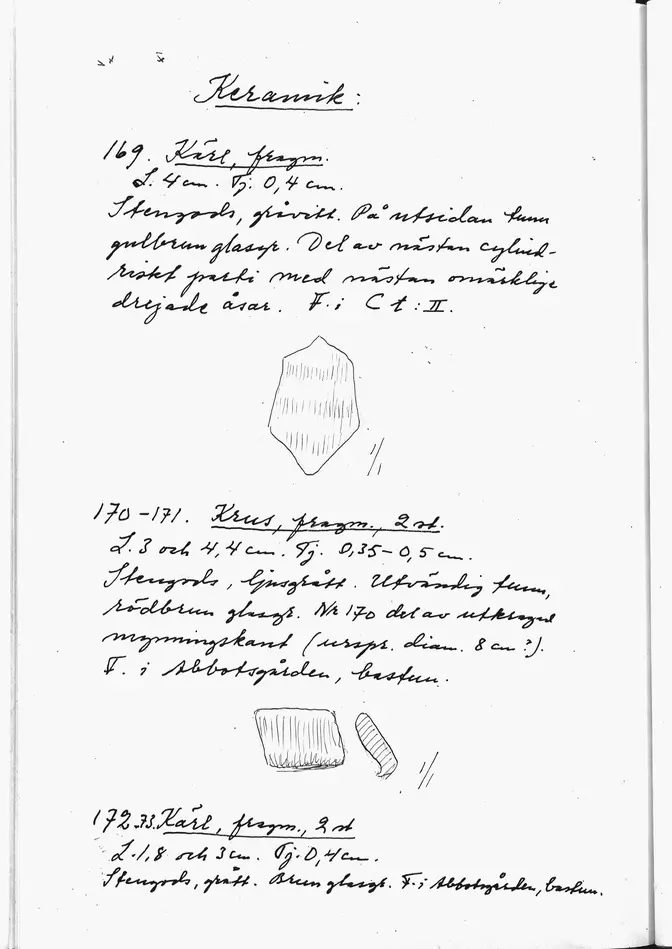 Keramik:
169. Kärl, fragm.
L. 4 cm. Tj. 0,4 cm.
Stengods, gråvitt. På utsidan tunn
gulbrun glasyr. Del av nästan cylind-
riskt parti med nästan omärklige
drejade åsar. F. i Ct:II.
1/1
170-171. Krus, fragm., 2 st.
L. 3 och 4,4 cm. Tj. 0,35-0,5 cm.
Stengods, ljusgrått. Utvändig tunn,
rödbrun glasyr. Nr 170 del av utkragad
mynningskant (urspr. diam. 8 cm?).
F. i Abbotsgården, bastun.
1/1
172-73. Kärl, fragm., 2 st
L. 1,8 och 3 cm. Tj. 0,4 cm.
Stengods, grått. Brun glasyr. F. i Abbotsgården, bastun.